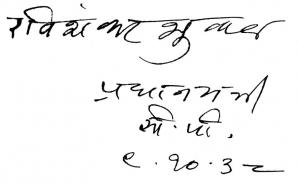 रविशंकर शुक्ल
प्रधानमंत्री
सी. पी.
९.१०.३८